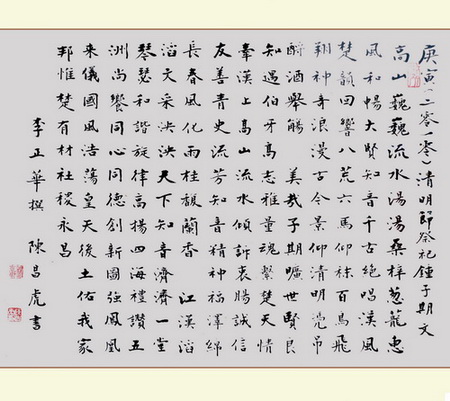 庚寅(二零一零)清明節祭祀鍾子期文
高山巍巍流水湯湯桑梓蔥蘢惠
風和暢大賢知音千古絕唱漢風
楚韻回響八荒六馬仰秣百鳥飛
翔神奇浪漫古今景仰清明吊
酹酒舉觴美哉子期曠世賢良
知遇伯牙高志雅量魂縈楚天情
牽漢上高山流水傾訴衷腸誠信
友善青史流芳知音精神福澤綿
長春風化雨桂馥蘭香江漢滔
滔天采泱泱天下知音濟濟一堂
琴瑟和諧旋律高揚四海禮讚五
洲尚饗同心同德創新圖強鳳凰
來儀國風浩蕩皇天後土佑我家
邦惟楚有材社稷永昌
李正華撰 陳昌虎書